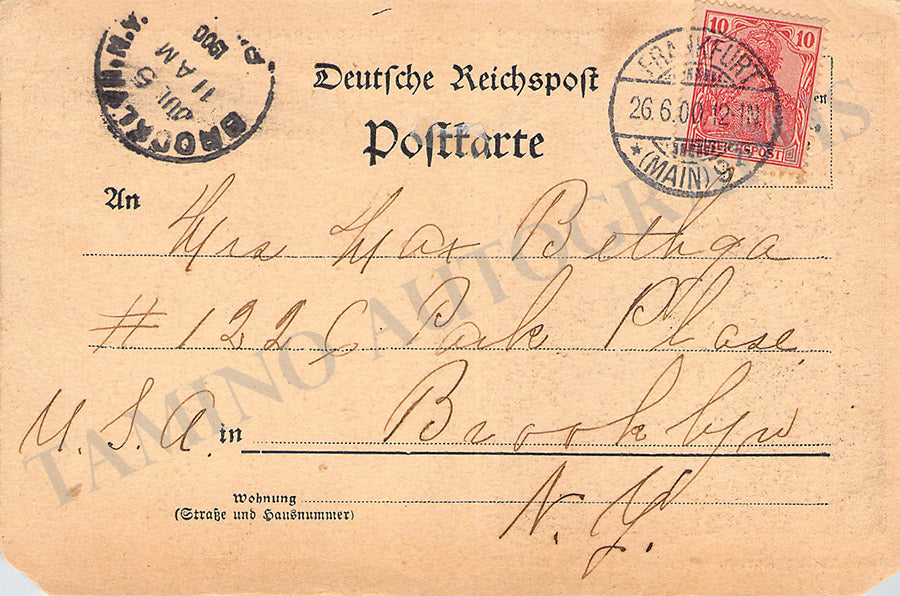 BROOKLYN, N.Y.
JUL 5
11 AM
1900
10 10
REICHSPOST
FRANKFURT
26.6.00. 12-1N.
* (MAIN) 9 *
Deutsche Reichspost
Postkarte
An
Mrs Max Bethga
# 1226 Park Plase
U. S. A. in Brooklyn
N. Y.
Wohnung
(Straße und Hausnummer)
TAMINO AUTOGRAPHS